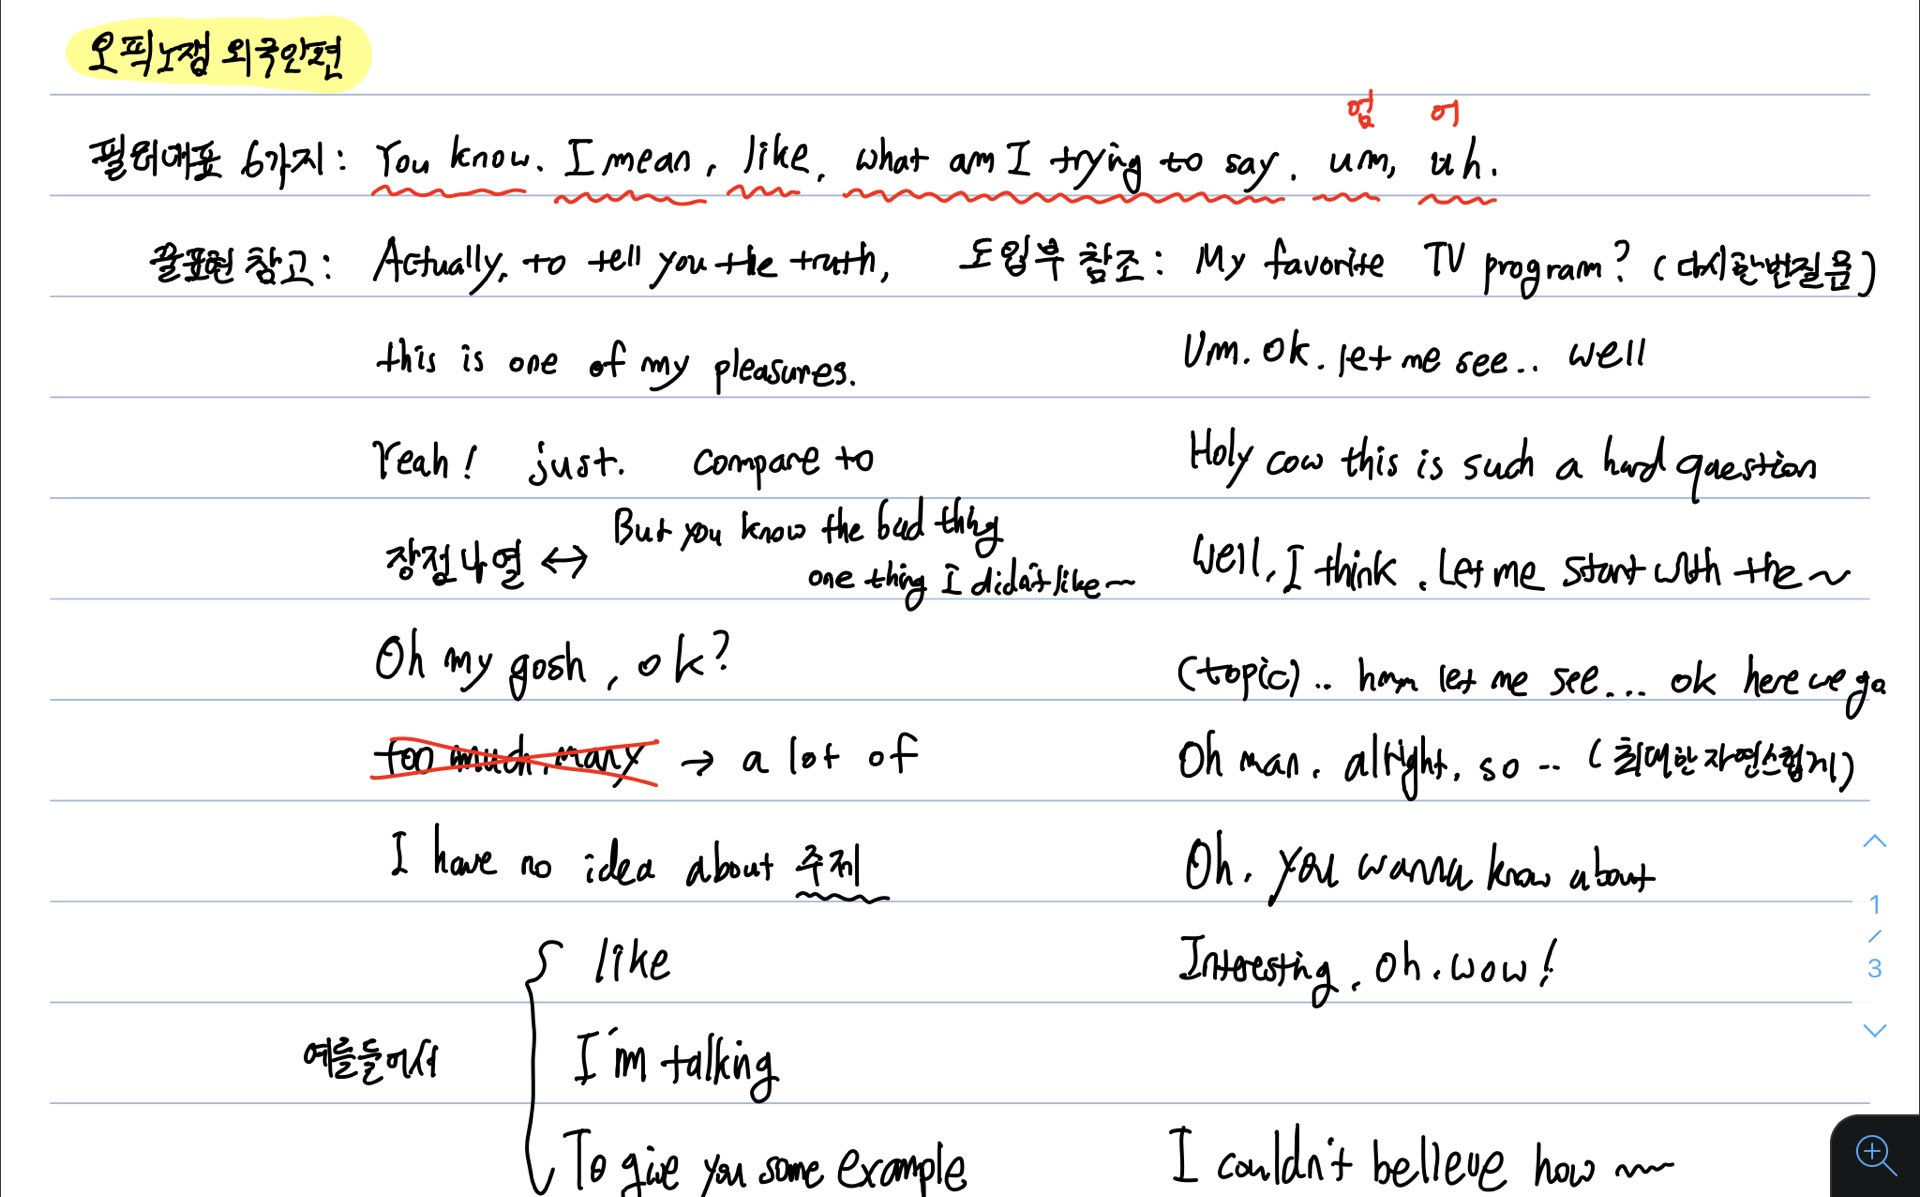 오픽노잼 외국인편
엄 어
필러대표 6가지 : You know. I mean, like, what am I trying to say. um, uh.
꿀표현 참고 : Actually, to tell you the truth, 도입부 참조 : My favorite TV program? (다시한번질문)
this is one of my pleasures. Um. Ok. let me see.. well
Yeah! just. compare to Holy cow this is such a hard question
장점나열 ↔ But you know the bad thing
one thing I didn't like~ Well, I think. Let me start with the ~
Oh my gosh, ok? (topic).. hmm let me see... ok here we go
too much, many → a lot of Oh man. alright. so .. (최대한 자연스럽게)
I have no idea about 주제 Oh. you wanna know about
like Interesting. Oh. wow!
예를들어서 I'm talking
To give you some example I couldn't believe how ~
1
/
3